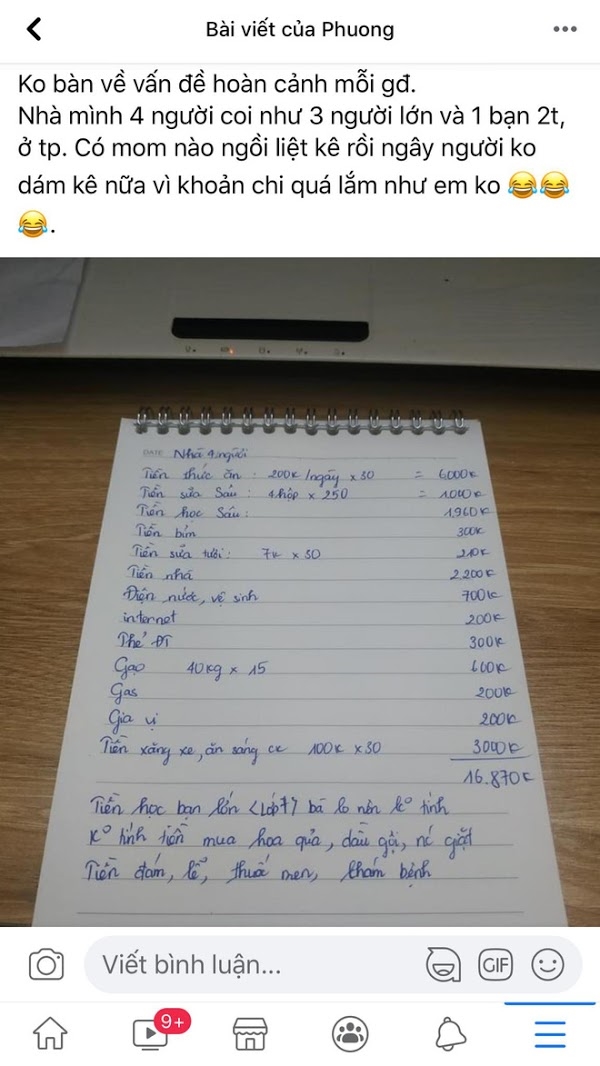 Bài viết của Phuong
Ko bàn về vấn đề hoàn cảnh mỗi gđ.
Nhà mình 4 người coi như 3 người lớn và 1 bạn 2t,
ở tp. Có mom nào ngồi liệt kê rồi ngây người ko
dám kê nữa vì khoản chi quá lắm như em ko 😂😂
😂.
DATE Nhà 4 người
Tiền thức ăn : 200k/ngày x 30 = 6000k
Tiền sữa Sâu : 4 hộp x 250 = 1000k
Tiền học Sâu : 1.960k
Tiền bỉm 300k
Tiền sữa tươi : 7k x 30 210k
Tiền nhà 2.200k
Điện nước, vệ sinh 700k
internet 200k
Thẻ ĐT 300k
Gạo 40kg x 15 600k
Gas 200k
Gia vị 200k
Tiền xăng xe, ăn sáng ck 100k x 30 3000k
16.870k
Tiền học bạn lớn <Lớp 7> bà lo nên ko tính
Ko tính tiền mua hoa quả, dầu gội, nc giặt
Tiền đám, lễ, thuốc men, thăm bệnh
Viết bình luận...
GIF
9+